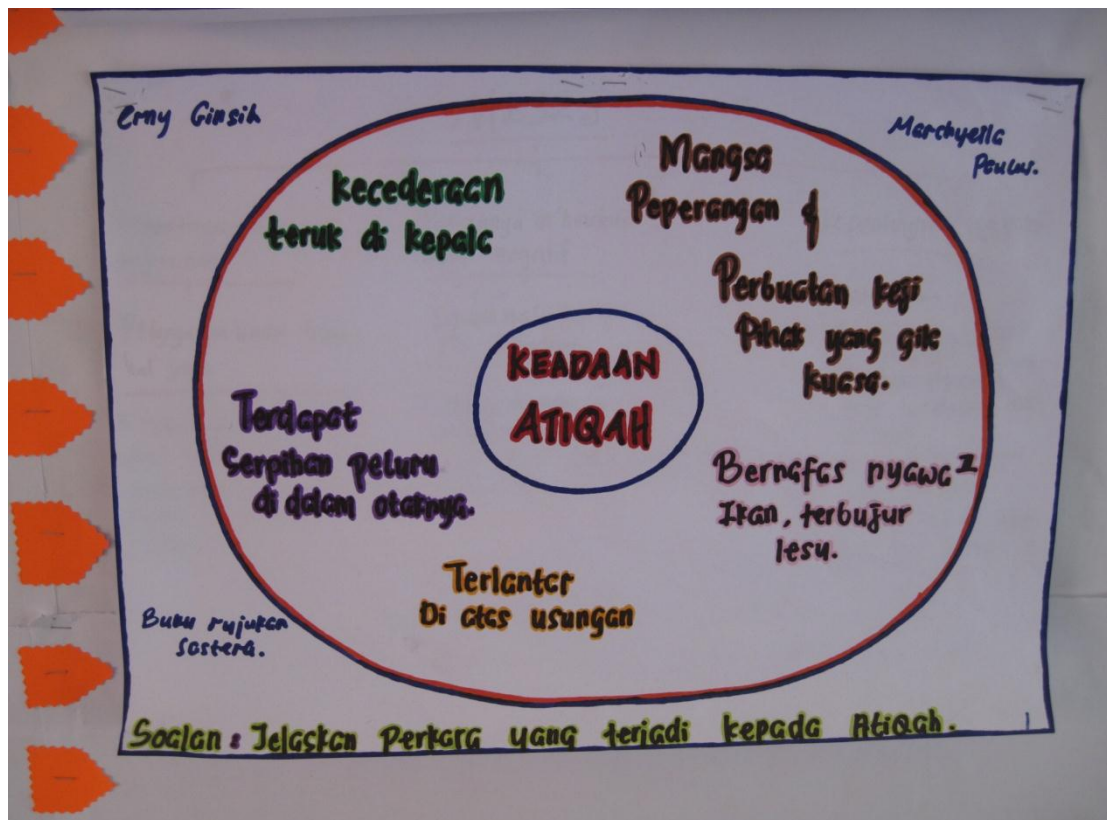 Erny Ginsih
Marchyella
Paulus.
Kecederaan
teruk di kepala
Mangsa
Peperangan &
Perbuatan keji
Pihak yang gila
kuasa.
KEADAAN
ATIQAH
Terdapat
Serpihan peluru
di dalam otaknya.
Bernafas nyawa2
Ikan, terbujur
lesu.
Terlantar
Di atas usungan
Buku rujukan
sastera.
Soalan : Jelaskan Perkara yang terjadi kepada Atiqah.